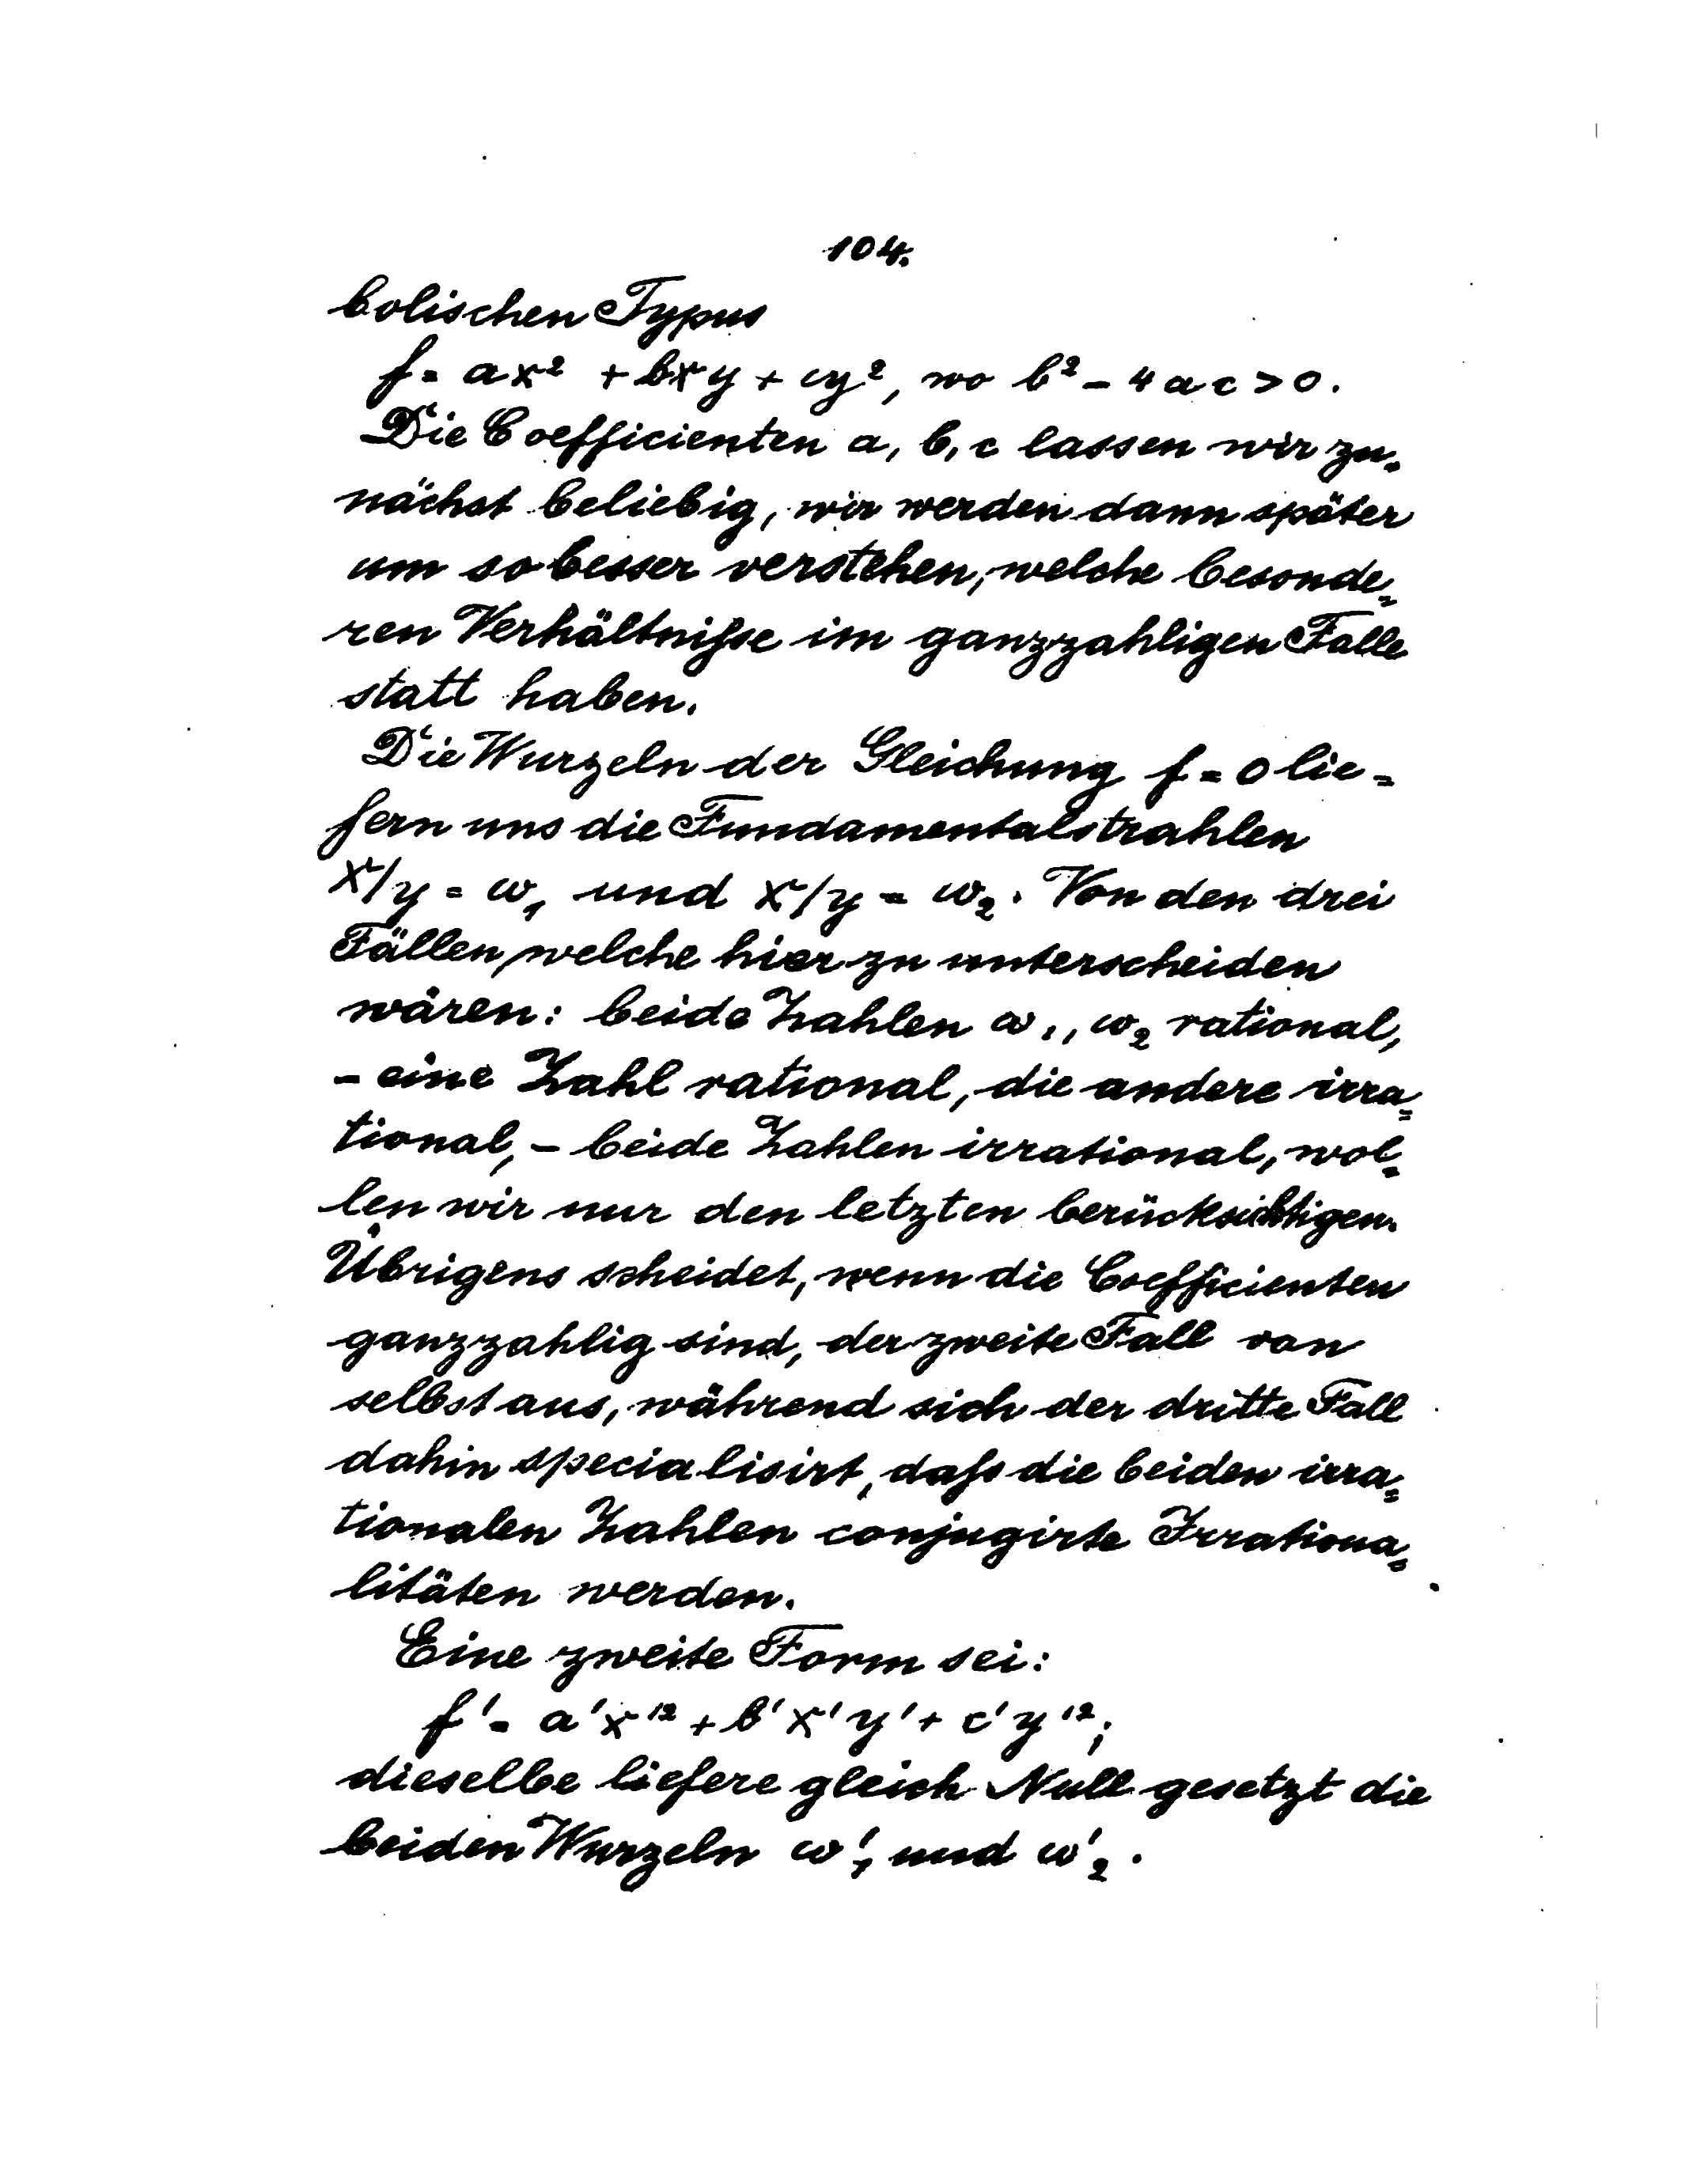 104.
bolischen Typus
f = ax² + bxy + cy², wo b² - 4ac > 0.
Die Coefficienten a, b, c lassen wir zu-
nächst beliebig, wir werden dann später
um so besser verstehen, welche besonde=
ren Verhältniſse im ganzzahligen Falle
statt haben.
Die Wurzeln der Gleichung f = 0 lie=
fern uns die Fundamentalstrahlen
x/y = ω₁ und x/y = ω₂. Von den drei
Fällen, welche hier zu unterscheiden
wären: beide Zahlen ω₁, ω₂ rational,
- eine Zahl rational, die andere irra=
tional, - beide Zahlen irrational, wol=
len wir nur den letzten berücksichtigen.
Übrigens scheidet, wenn die Coefficienten
ganzzahlig sind, der zweite Fall von
selbst aus, während sich der dritte Fall
dahin specialisirt, daſs die beiden irra=
tionalen Zahlen conjugirte Irrationa=
litäten werden.
Eine zweite Form sei:
f' = a'x'² + b'x'y' + c'y'²;
dieselbe liefere gleich Null gesetzt die
beiden Wurzeln ω'₁ und ω'₂.